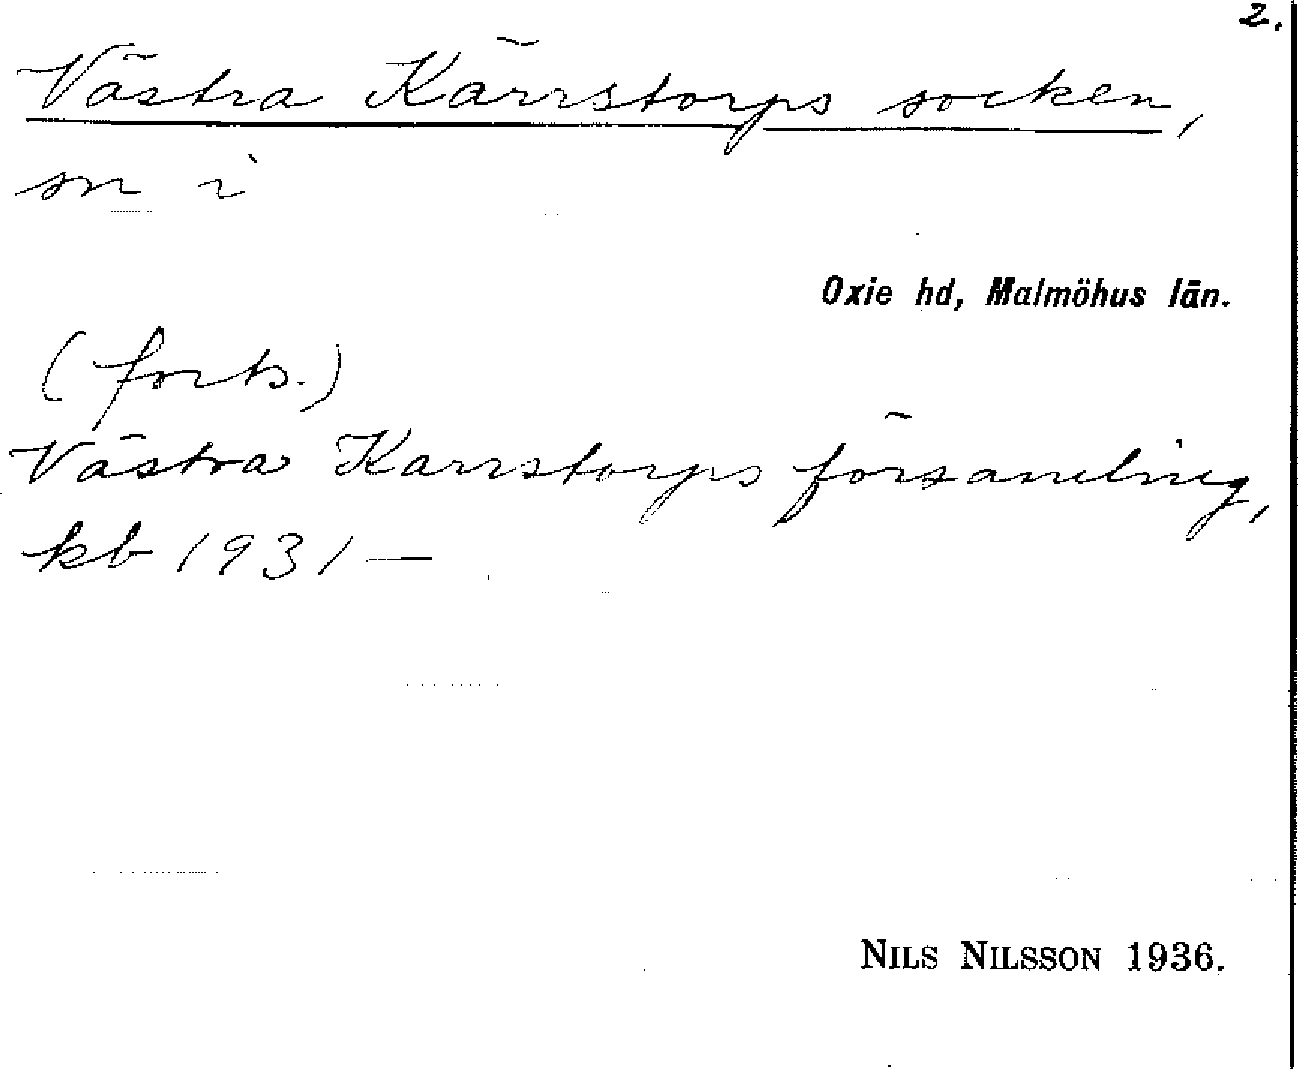 2.
Västra Kärrstorps socken,
sn i
Oxie hd, Malmöhus län.
(forts.)
Västra Karrstorps församling,
kb 1931—
NILS NILSSON 1936.